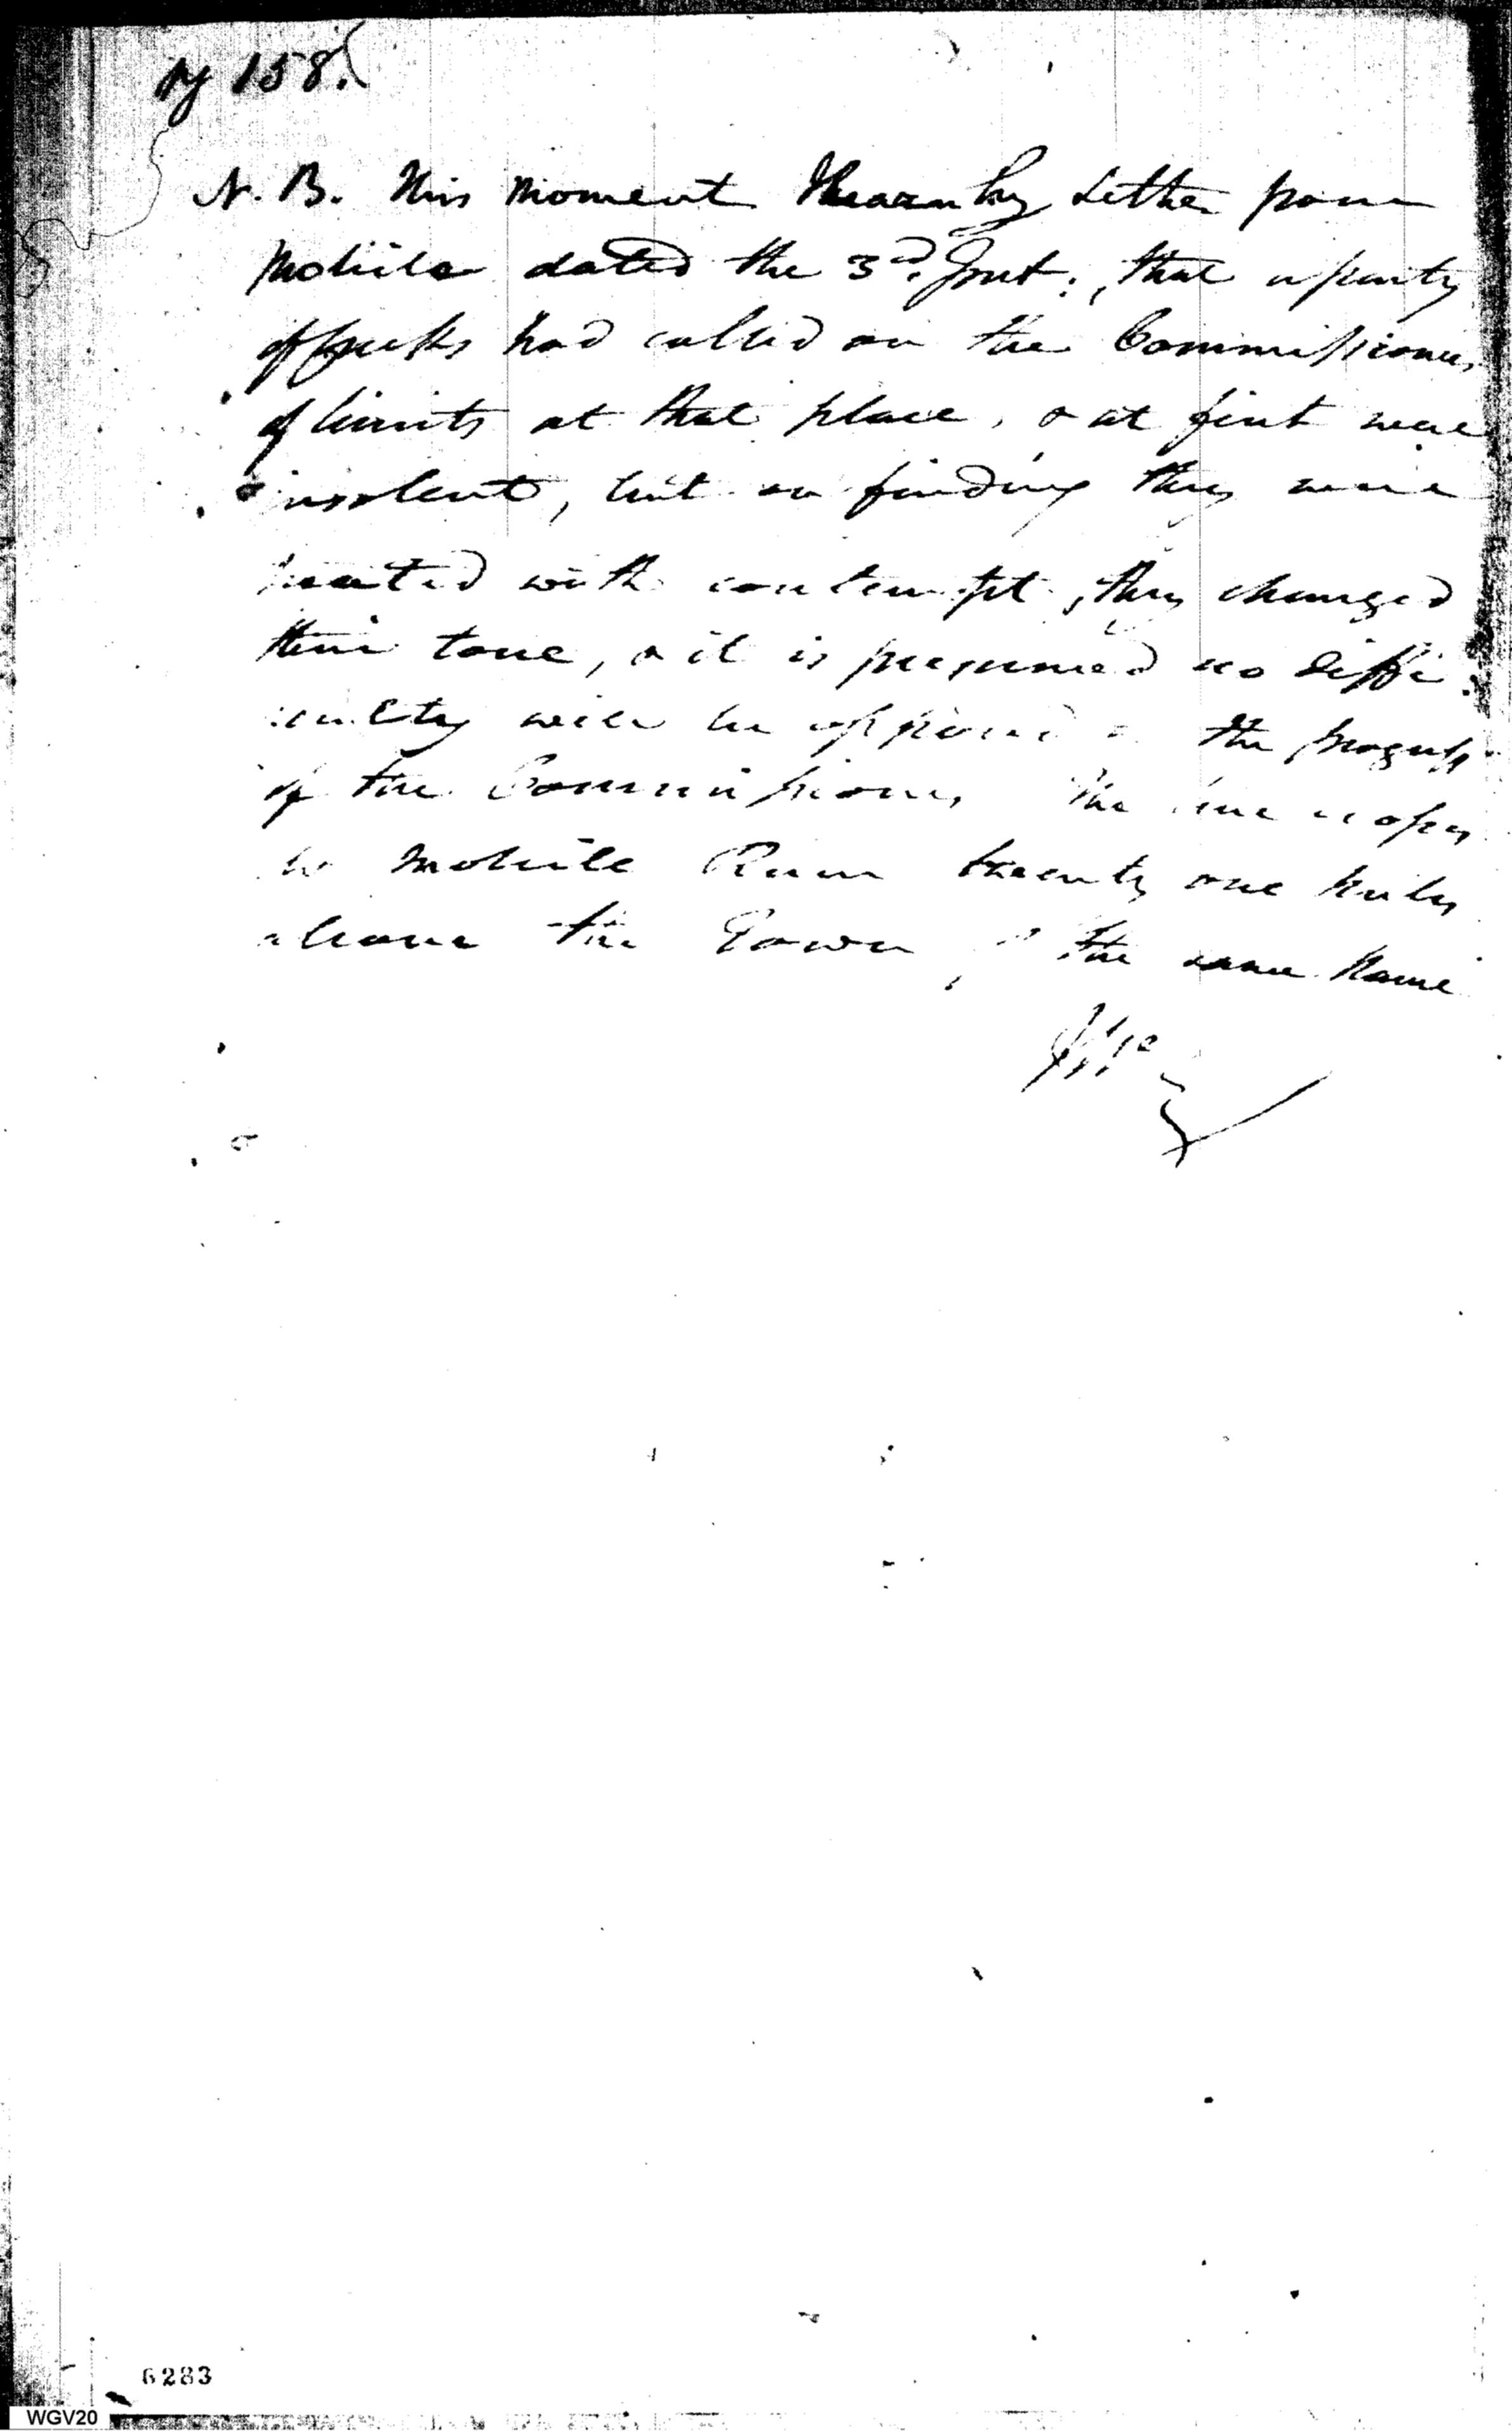 pg 158.
N. B. This moment I learn by Letter from
Mobile dated the 3d. Inst:, that a party
of Creeks had called on the Commissioners
of limits at that place, & at first were
insolent, but on finding they were
treated with contempt, they changed
their tone, & it is presumed no diffi
:culty will be opposed the progress
of the Commissioners The line is open
to Mobile River twenty one miles
above the Town of the same Name
6283
WGV20